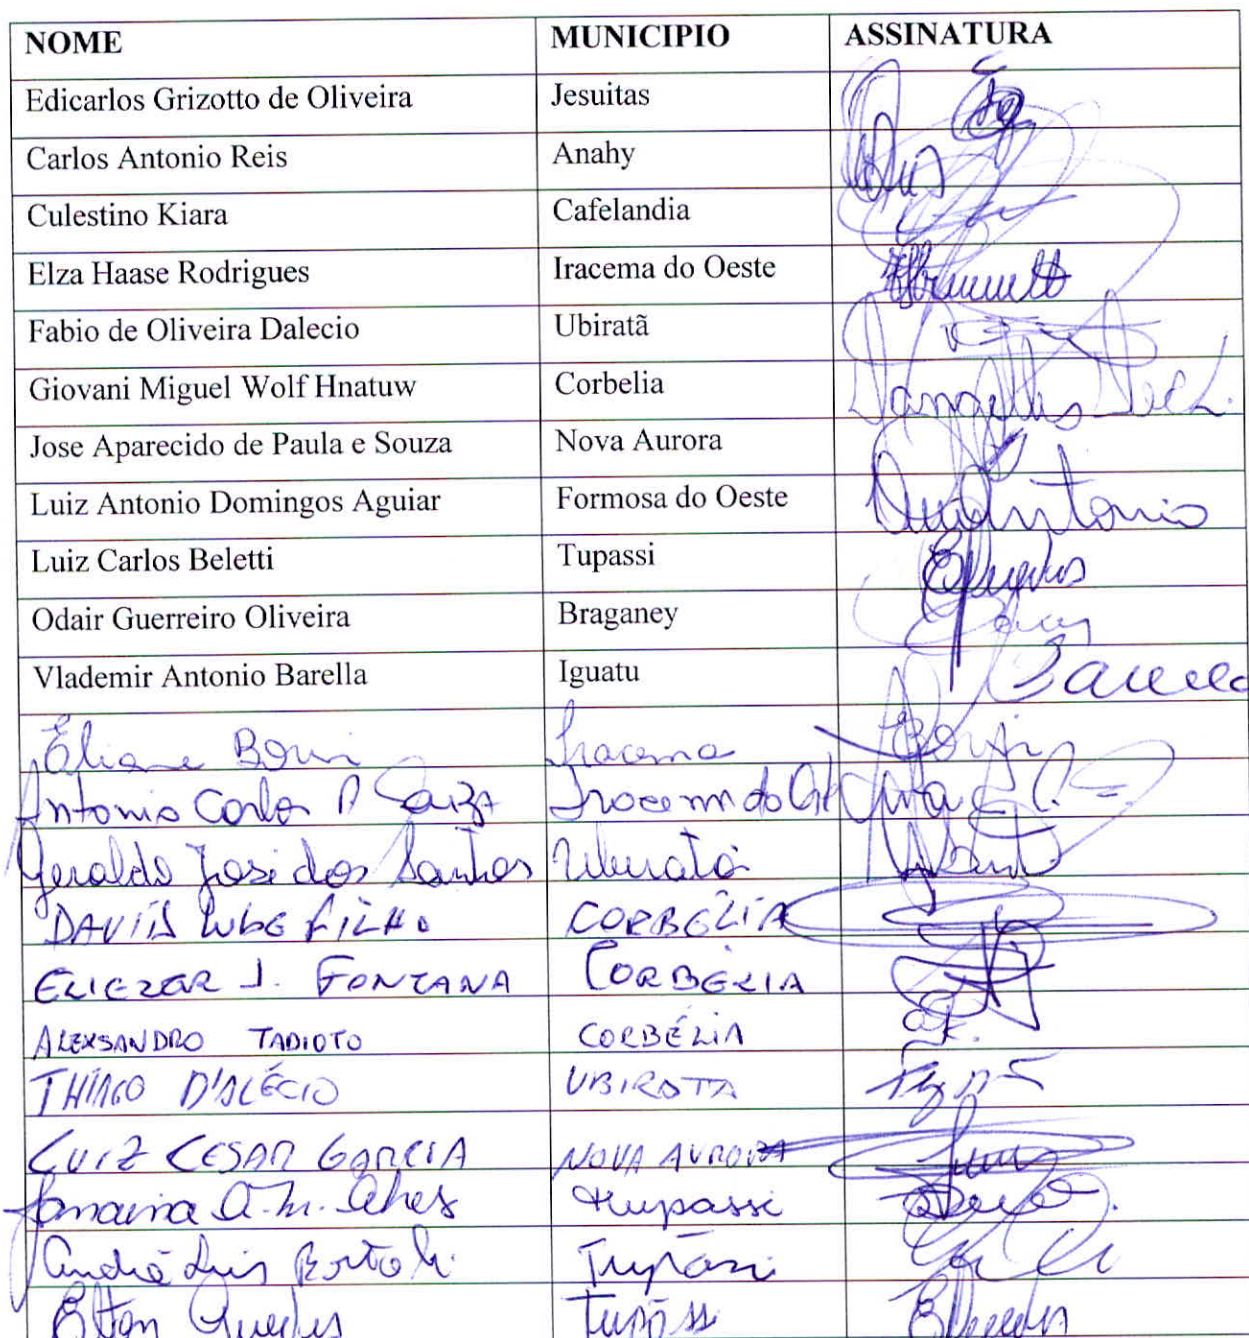 NOME MUNICIPIO ASSINATURA
Edicarlos Grizotto de Oliveira Jesuitas
Carlos Antonio Reis Anahy
Culestino Kiara Cafelandia
Elza Haase Rodrigues Iracema do Oeste
Fabio de Oliveira Dalecio Ubiratã
Giovani Miguel Wolf Hnatuw Corbelia
Jose Aparecido de Paula e Souza Nova Aurora
Luiz Antonio Domingos Aguiar Formosa do Oeste Luiz Antonio
Luiz Carlos Beletti Tupassi EGuedes
Odair Guerreiro Oliveira Braganey
Vlademir Antonio Barella Iguatu Barella
Eliane Iracema
Antonio Carlos Iracema do
Geraldo José dos Santos Ubiratã
FILHO CORBÉLIA
ELIEZER J. FONTANA CORBÉLIA
ALEXSANDRO TADIOTO CORBÉLIA
THIAGO D'ALÉCIO UBIRATA
LUIZ CESAR GARCIA NOVA AURORA
Janaina A. M. Alves Tupassi
André Luis Bortoli Tupãssi
Elton Guedes Tupãssi EGuedes